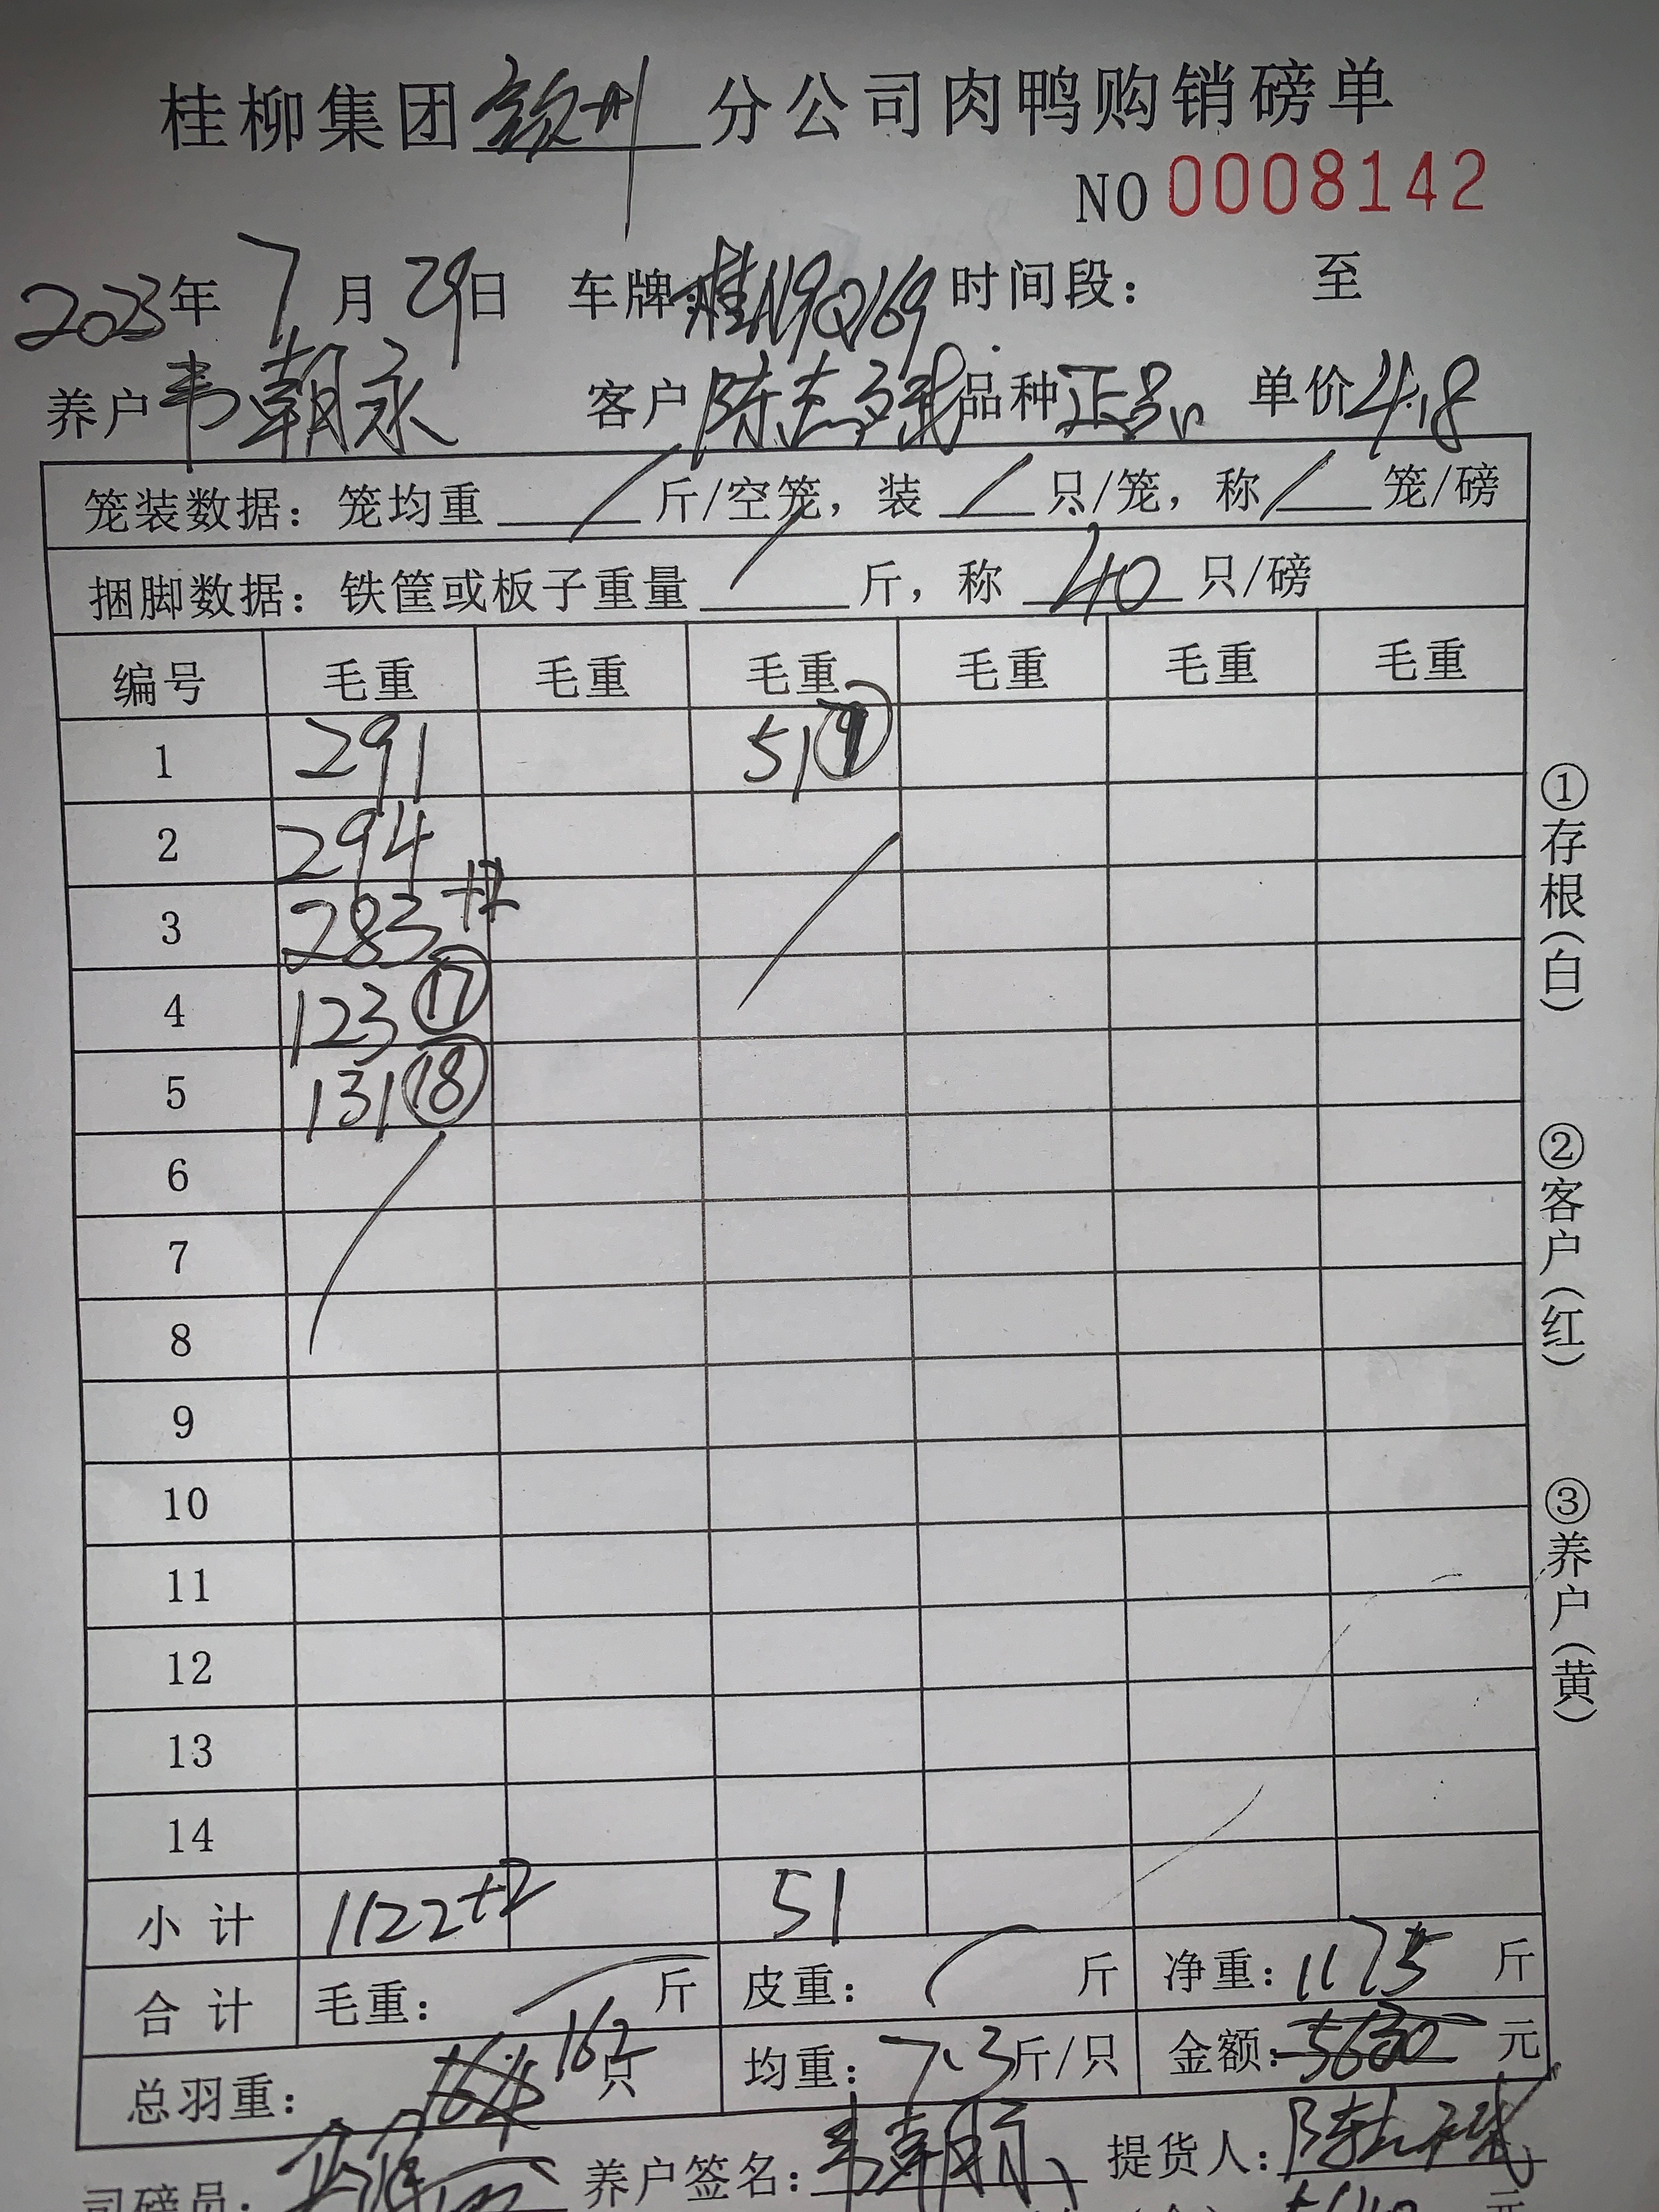 桂柳集团钦州分公司肉鸭购销磅单
NO 0008142
2023年7月29日 车牌:桂N9Q169 时间段: 至
养户韦朝永 客户陈志 品种正品 单价4.8
笼装数据:笼均重 / 斤/空笼,装 / 只/笼,称 / 笼/磅
捆脚数据:铁筐或板子重量 / 斤,称 40 只/磅
编号 毛重 毛重 毛重 毛重 毛重 毛重
1 291 51
2 294
3 283+2
4 123 ⑰
5 131 ⑱
6
7
8
9
10
11
12
13
14
小计 1122+2 51
合计 毛重: 斤 皮重: 斤 净重:1175斤
总羽重: 162只 均重:7.3斤/只 金额: 元
司磅员: 养户签名:韦朝永 提货人:陈志
①存根(白)
②客户(红)
③养户(黄)